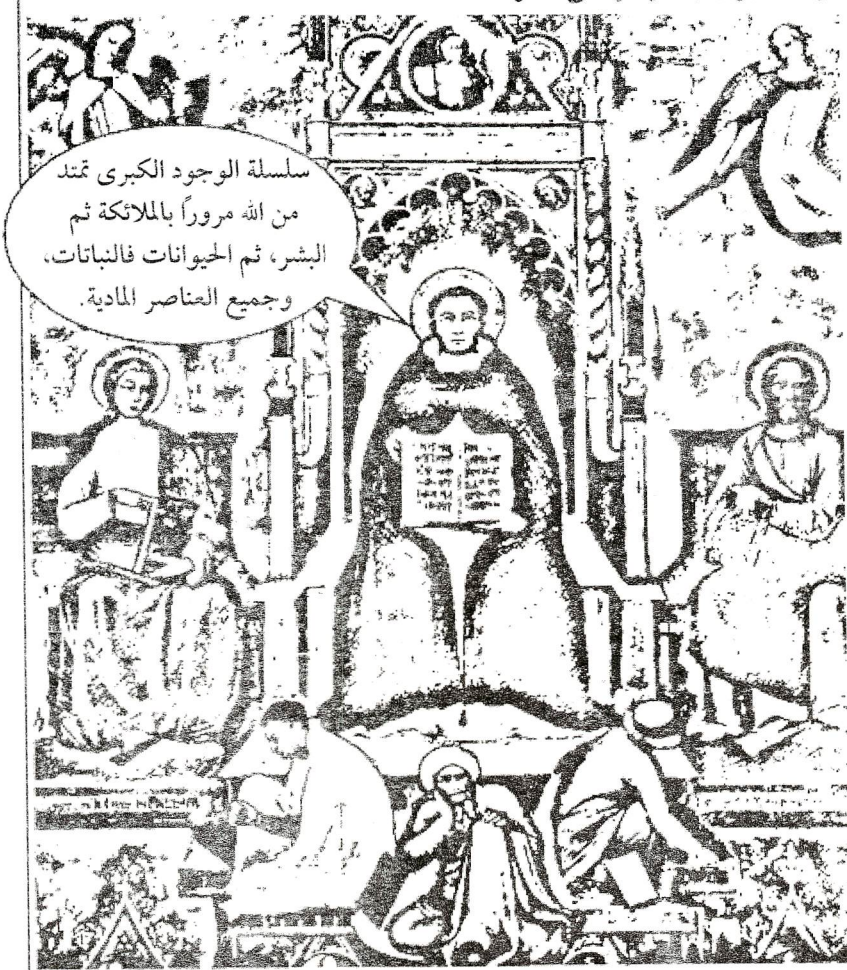 سلسلة الوجود الكبرى تمتد
من الله مروراً بالملائكة ثم
البشر، ثم الحيوانات فالنباتات،
وجميع العناصر المادية.